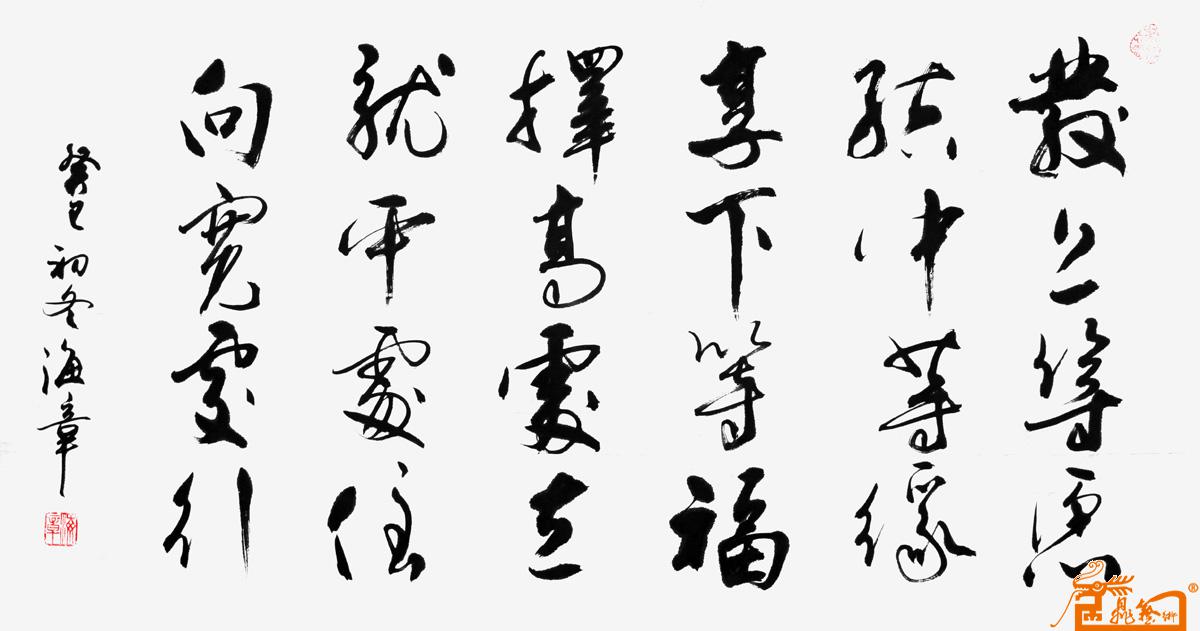 發上等愿
結中等緣
享下等福
擇高處立
就平處住
向寬處行
癸巳初冬海章